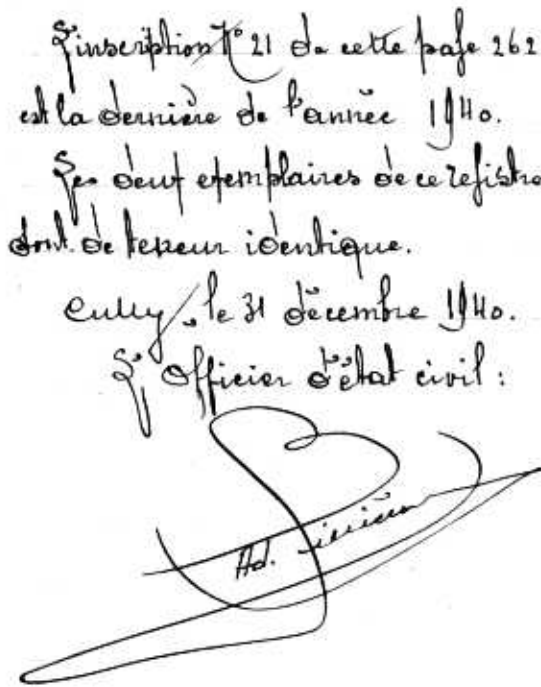 L'inscription N° 21 de cette page 262
est la dernière de l'année 1940.
Les deux exemplaires de ce registre
sont de teneur identique.
Cully, le 31 décembre 1940.
L'Officier d'état civil :
Ad.